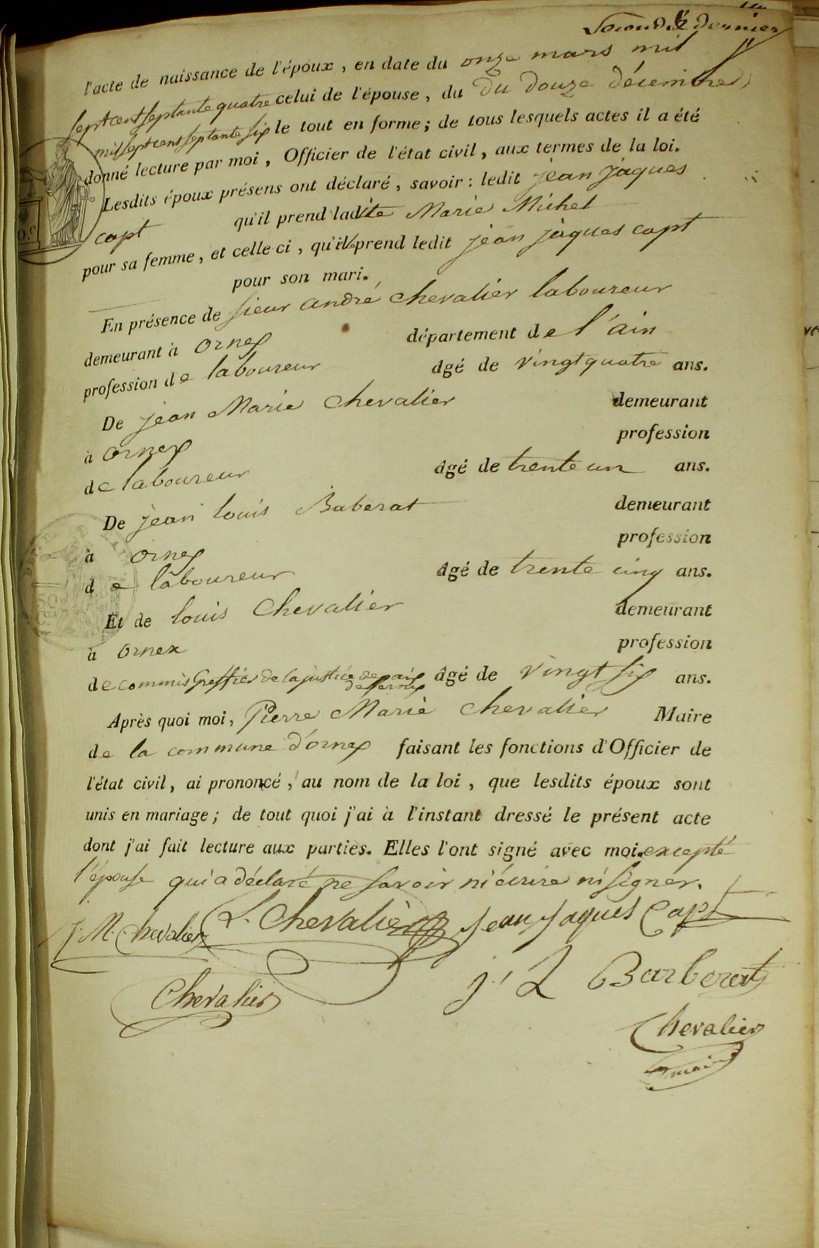 Second & dernier
l'acte de naissance de l'époux, en date du onze mars mil
sept cent septante quatre celui de l'épouse, du du douze décembre
mil sept cent septante six le tout en forme; de tous lesquels actes il a été
donné lecture par moi, Officier de l'état civil, aux termes de la loi.
Lesdits époux présens ont déclaré, savoir: ledit jean jaques
capt qu'il prend ladite Marie Michel
pour sa femme, et celle ci, qu'il prend ledit jean jaques capt
pour son mari.
En présence de sieur andré chevalier laboureur
demeurant à ornex département de l'ain
profession de laboureur âgé de vingt quatre ans.
De jean Marie chevalier demeurant
à ornex profession
de laboureur âgé de trente un ans.
De jean louis Baberat demeurant
à ornex profession
de laboureur âgé de trente cinq ans.
Et de louis chevalier demeurant
à ornex profession
de commis Greffier de la justice de paix de ferney âgé de vingt six ans.
Après quoi moi, Pierre Marie chevalier Maire
de la commune d'ornex faisant les fonctions d'Officier de
l'état civil, ai prononcé, au nom de la loi, que lesdits époux sont
unis en mariage; de tout quoi j'ai à l'instant dressé le présent acte
dont j'ai fait lecture aux parties. Elles l'ont signé avec moi. excepté
l'épouse qui a déclaré ne savoir ni écrire ni signer.
J. M. Chevalier L. Chevalier Jean Jaques Capt
Chevalier j. L Barberat
Chevalier
maire